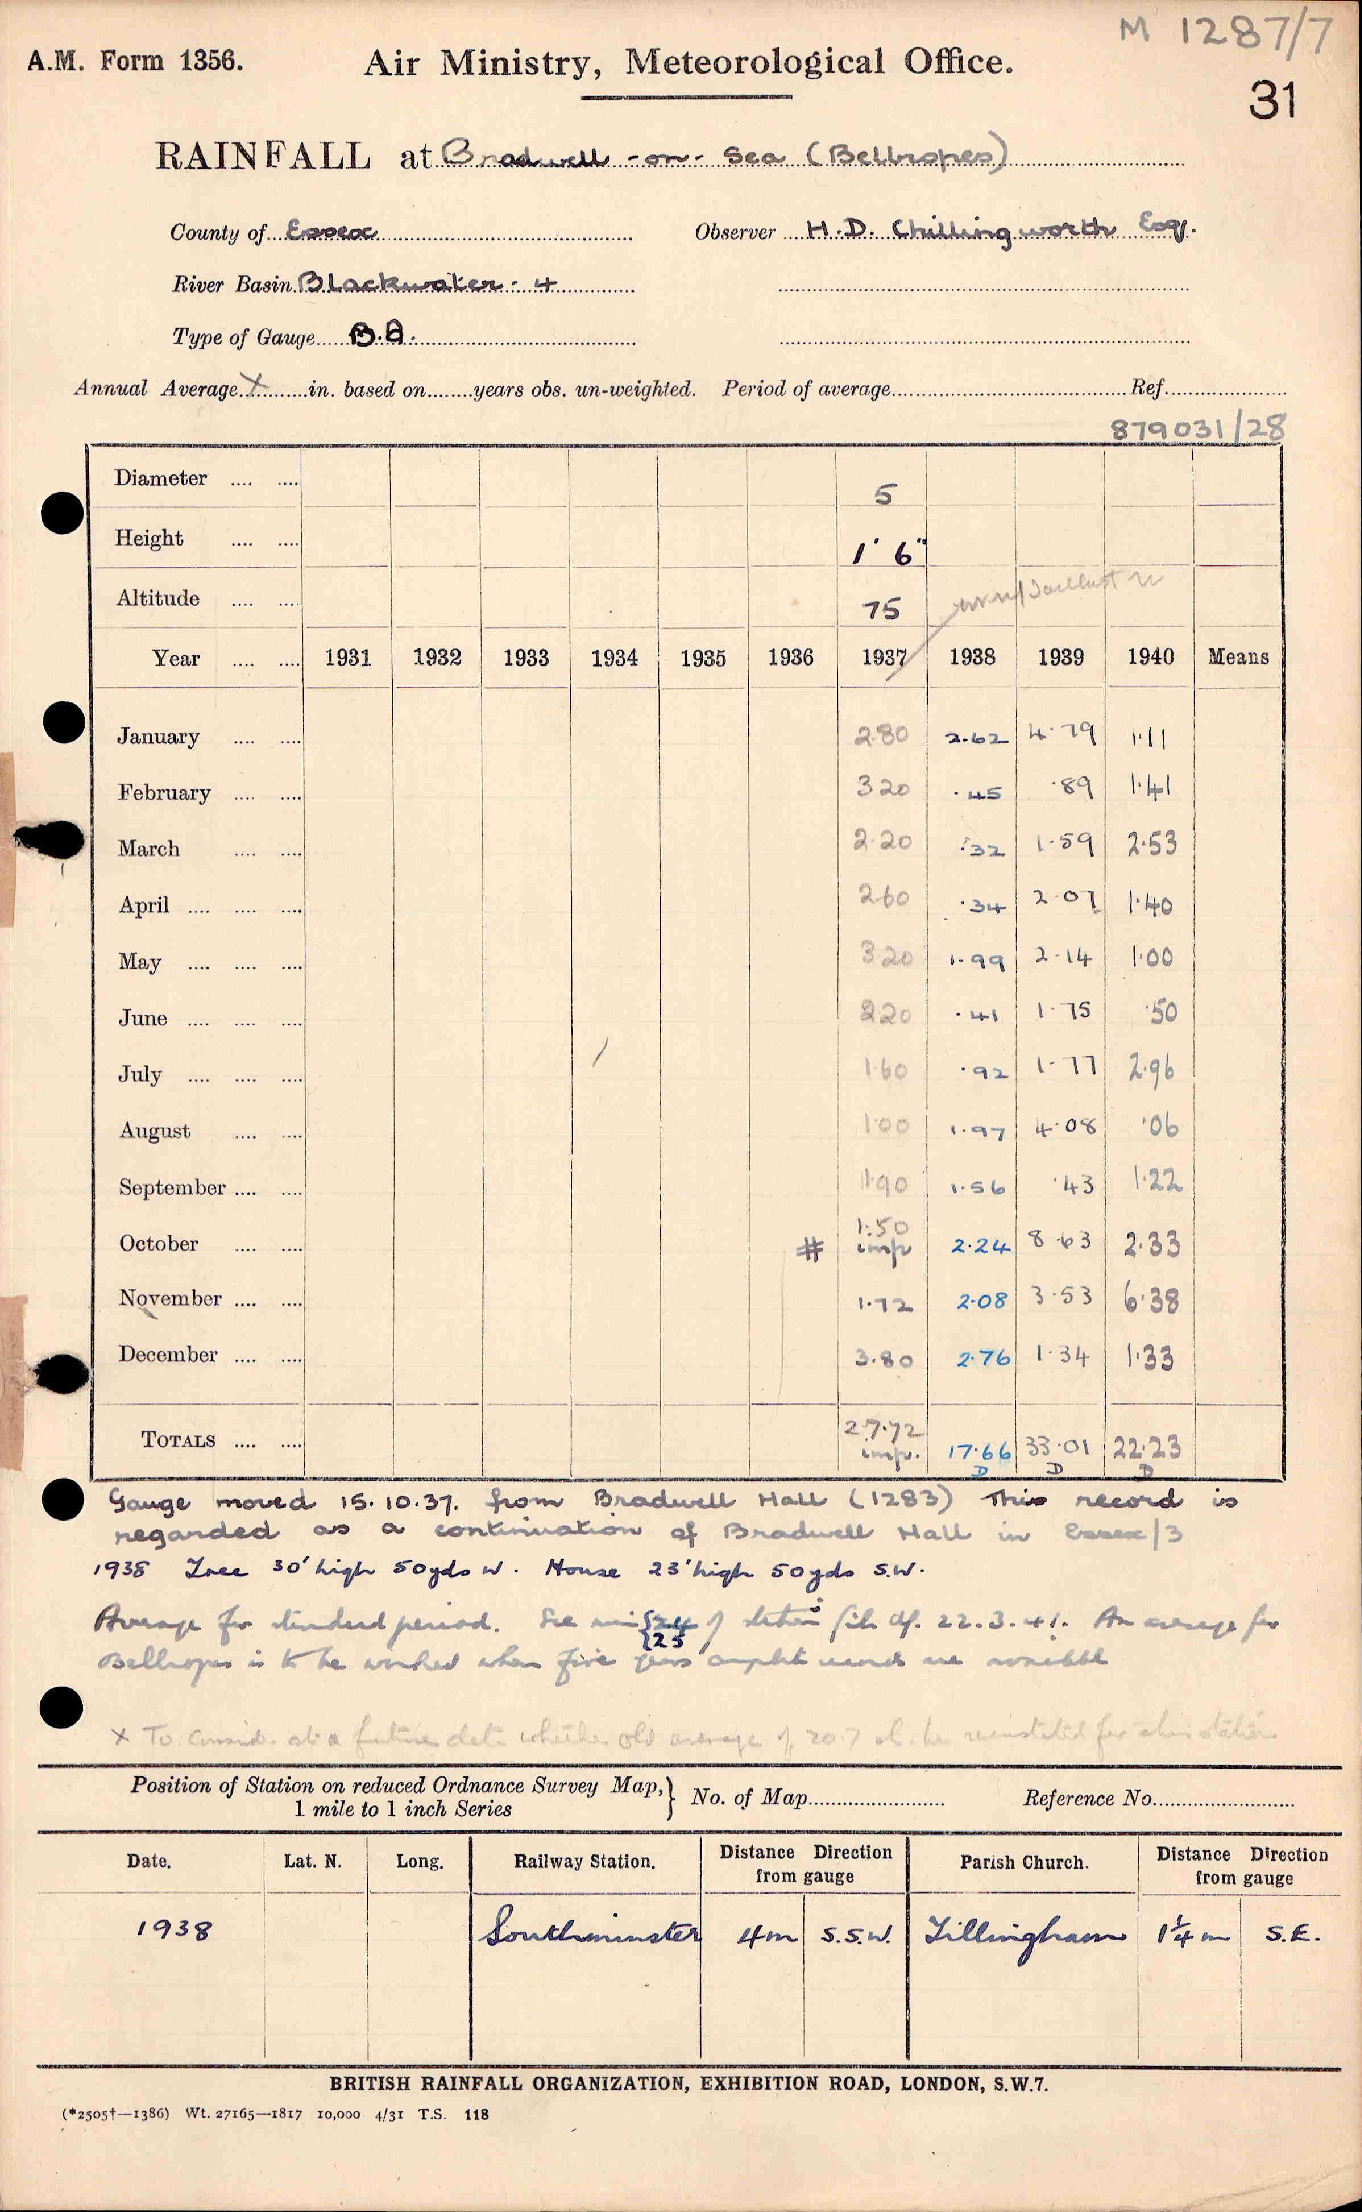 M 1287/7
A.M. Form 1356. Air Ministry, Meteorological Office.
31
RAINFALL at Bradwell-on-Sea (Bellropes)
County of Essex Observer H.D. Chillingworth Esq.
River Basin Blackwater. 4
Type of Gauge B.A.
Annual Average X in. based on years obs. un-weighted. Period of average Ref.
879031/28
Diameter 5
Height 1' 6"
Altitude 75
Year 1931 1932 1933 1934 1935 1936 1937 1938 1939 1940 Means
January 2.80 2.62 4.79 1.11
February 3 20 .45 .89 1.41
March 2.20 .32 1.59 2.53
April 2.60 .34 2.07 1.40
May 3 20 1.99 2.14 1.00
June 2 20 .41 1.75 .50
July 1.60 .92 1.77 2.96
August 1.00 1.97 4.08 .06
September 1.90 1.56 .43 1.22
October # 1.50 imp 2.24 8.63 2.33
November 1.72 2.08 3.53 6.38
December 3.80 2.76 1.34 1.33
TOTALS 27.72 imp. 17.66 33.01 22.23
D D D
Gauge moved 15.10.37. from Bradwell Hall (1283) This record is
regarded as a continuation of Bradwell Hall in Essex/3
1938 Tree 30' high 50yds W. House 23' high 50yds S.W.
Average for standard period. See min {24 25 of file df. 22.3.41. An average for
Bellropes is to be worked when five years complete records are available
X To consider at a future date whether old average of 20.7 sh. be reinstated for this station
Position of Station on reduced Ordnance Survey Map, } No. of Map Reference No.
1 mile to 1 inch Series
Date. Lat. N. Long. Railway Station. Distance Direction from gauge Parish Church. Distance Direction from gauge
1938 Southminster 4m S.S.W. Tillingham 1¼ m S.E.
BRITISH RAINFALL ORGANIZATION, EXHIBITION ROAD, LONDON, S.W.7.
(*2505†—1386) Wt. 27165—1817 10,000 4/31 T.S. 118